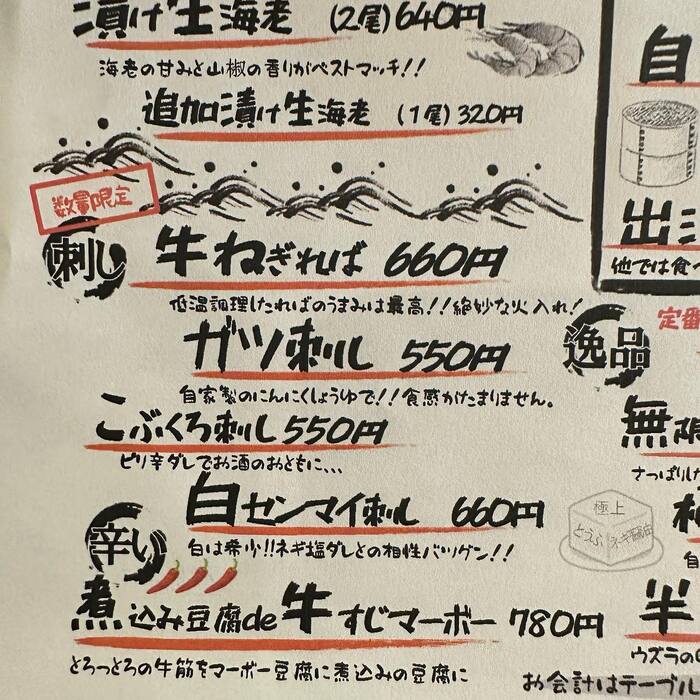 漬け生海老 (2尾)640円
海老の甘みと山椒の香りがベストマッチ!!
追加漬け生海老 (1尾)320円
数量限定
刺し
牛ねぎればー 660円
低温調理したればのうまみは最高!!絶妙な火入れ!
ガツ刺し 550円
自家製のにんにくしょうゆで!!食感がたまりません。
こぶくろ刺し550円
ピリ辛ダレでお酒のおともに、、、
白センマイ刺し 660円
白は希少!!ネギ塩ダレとの相性バツグン!!
辛い
煮込み豆腐de牛すじマーボー 780円
とろっとろの牛筋をマーボー豆腐に煮込みの豆腐に
自
出
他では食べ
逸品
定番
無限
さっぱりし
極上
とうふ
半
ウズラの
お会計はテーブル